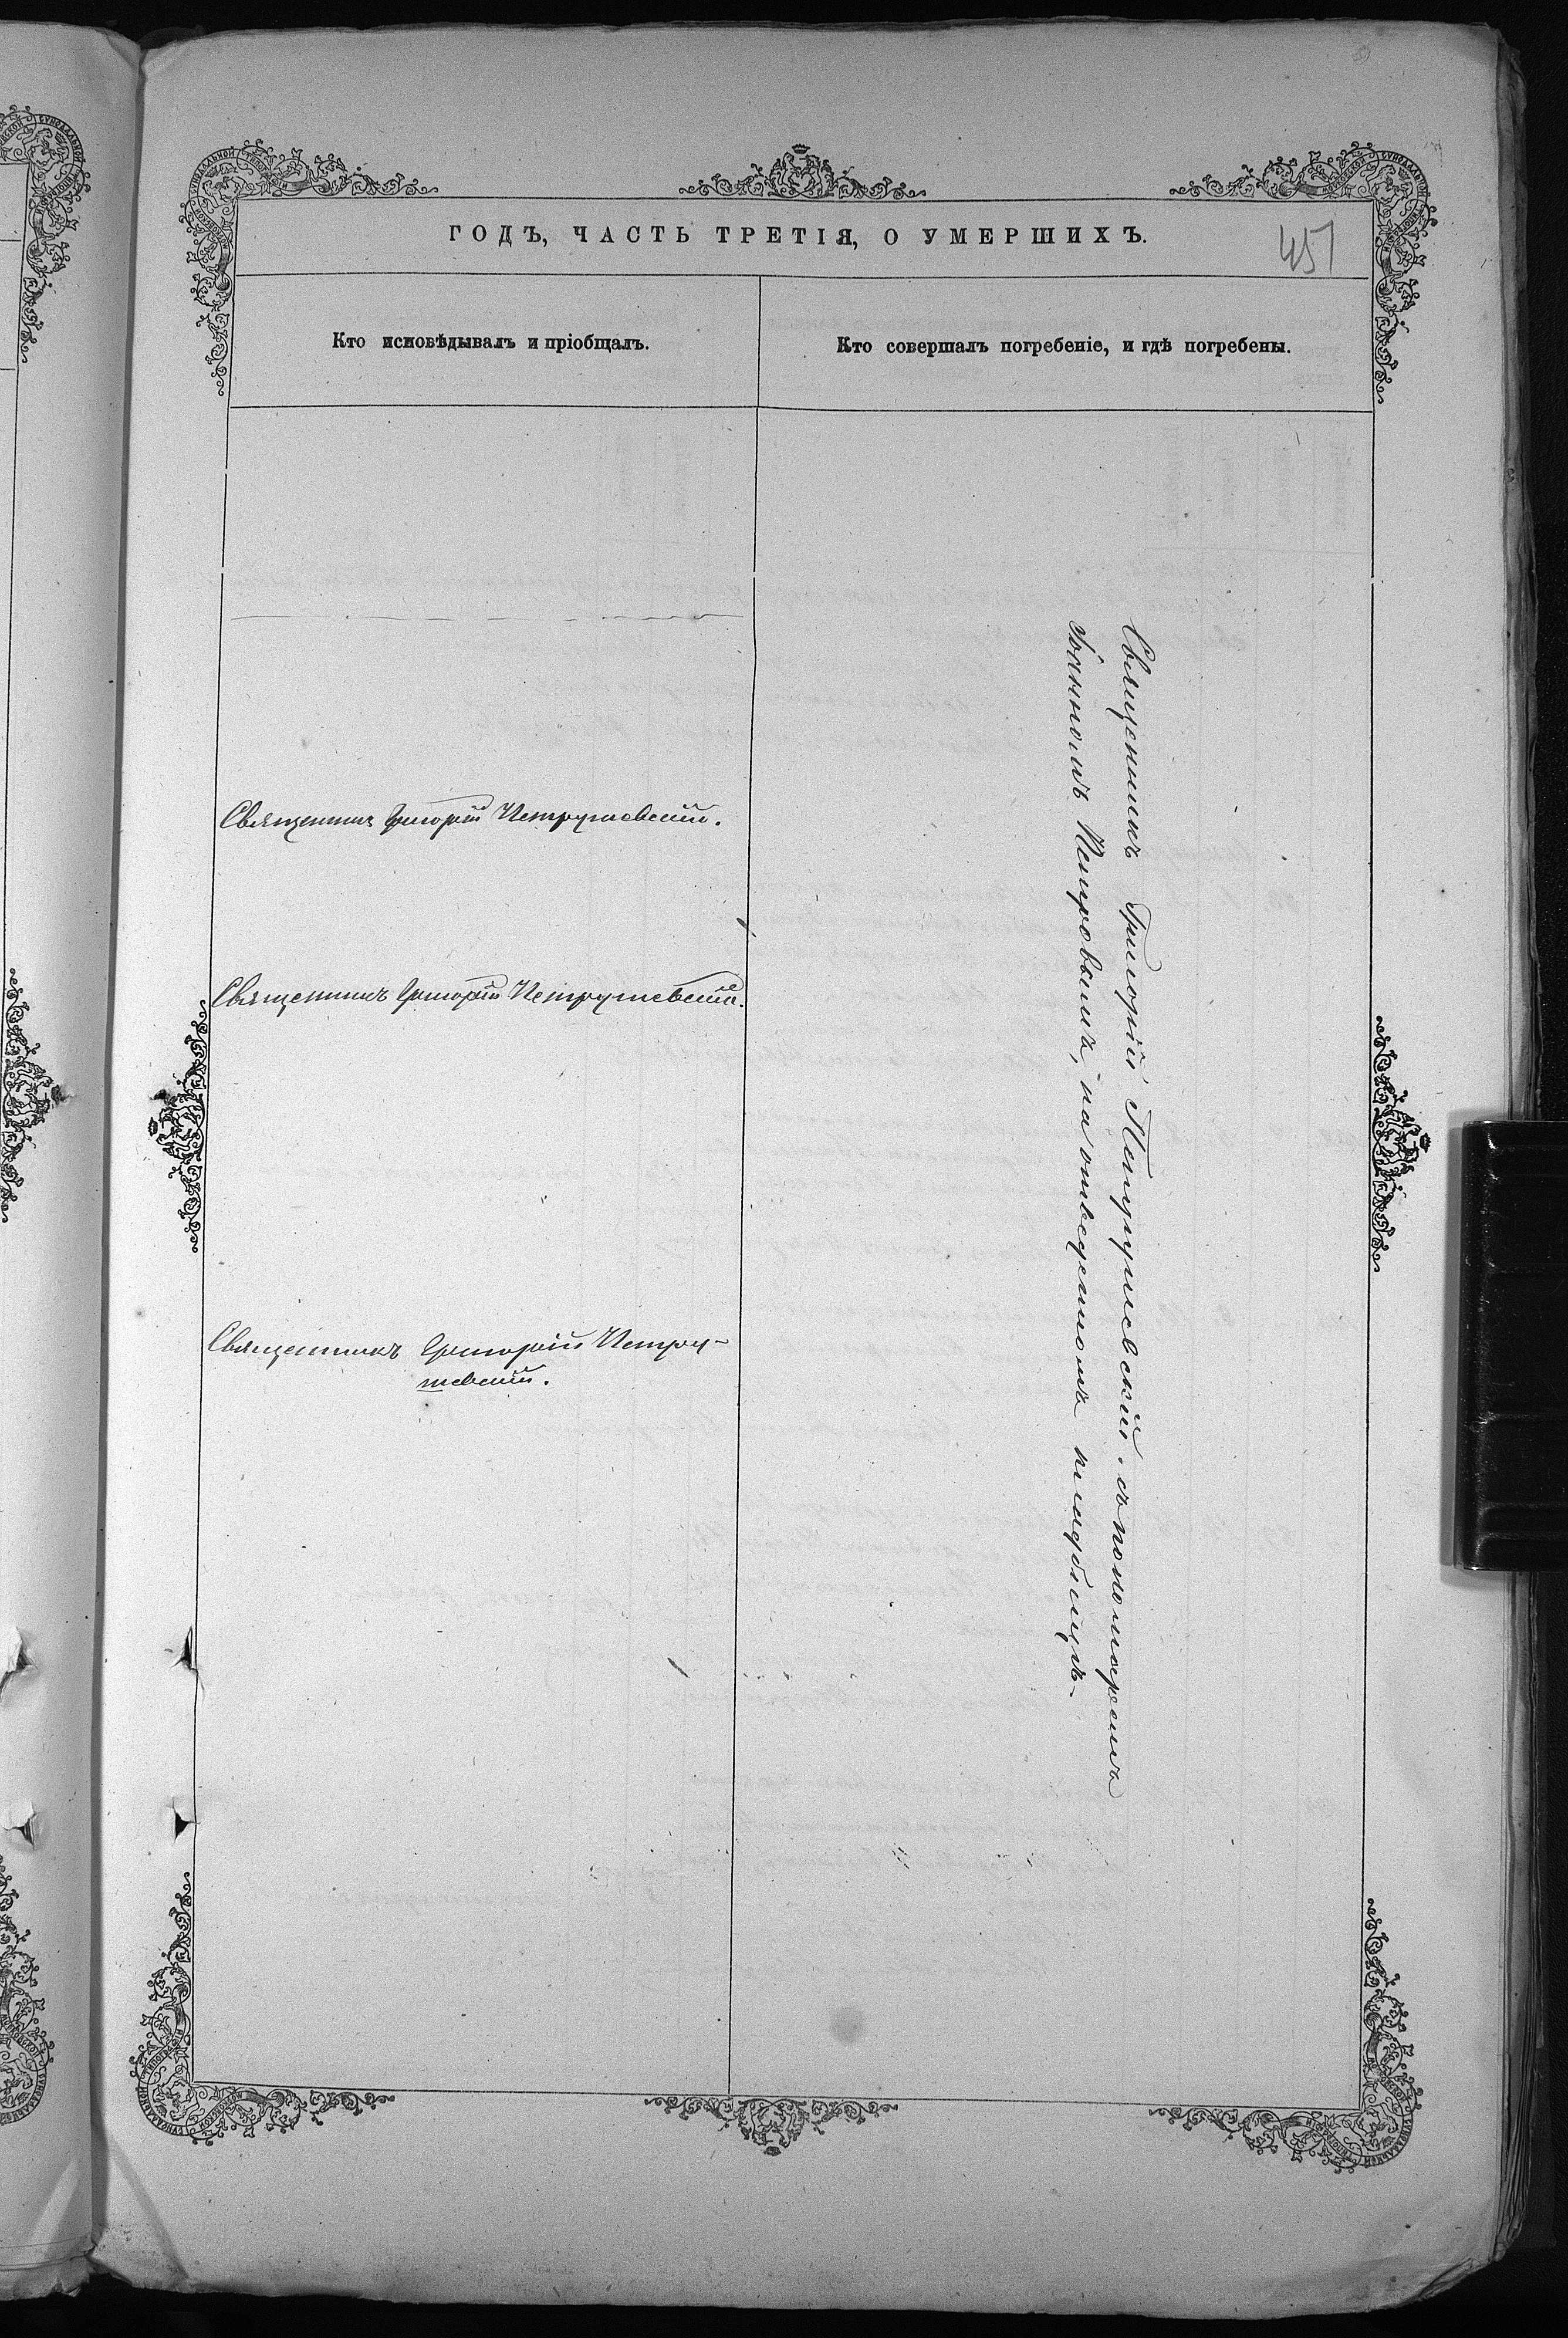 ГОДЪ, ЧАСТЬ ТРЕТІЯ, О УМЕРШИХЪ.
457
Кто исповѣдывалъ и пріобщалъ.
Кто совершалъ погребеніе, и гдѣ погребены.
Священникъ Григорій Петрушевскій.
Священникъ Григорій Петрушевскій.
Священникъ Григорій Петру-
шевскій.
Священникъ Григорій Петрушевскій. съ пономаремъ
Іоанномъ Петровымъ, на отведенномъ кладбищѣ.